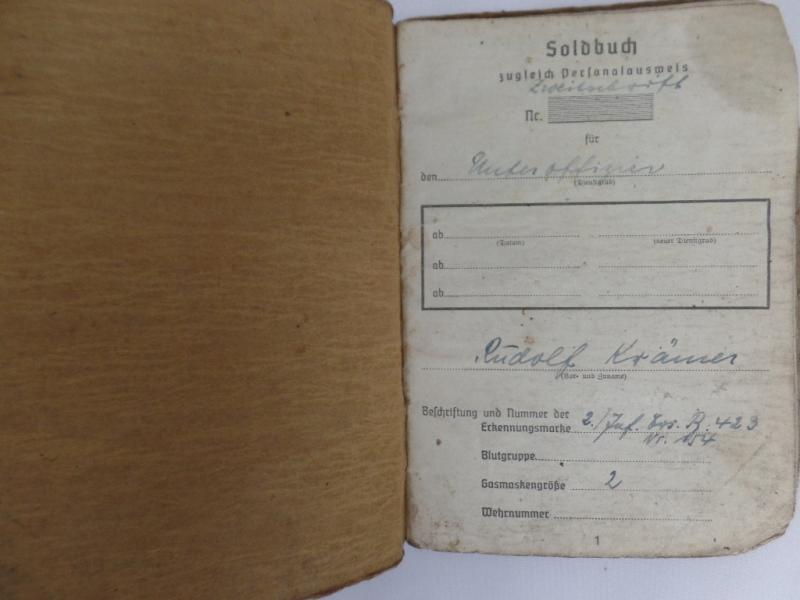 Soldbuch
zugleich Personalausweis
Zweitschrift
Nr.
für
den Unteroffizier
(Dienstgrad)
ab
(Datum) (neuer Dienstgrad)
ab
ab
Rudolf Krämer
(Vor- und Zuname)
Beschriftung und Nummer der
Erkennungsmarke 2./Inf. Ers. B. 423
Nr. 154
Blutgruppe
Gasmaskengröße 2
Wehrnummer
1